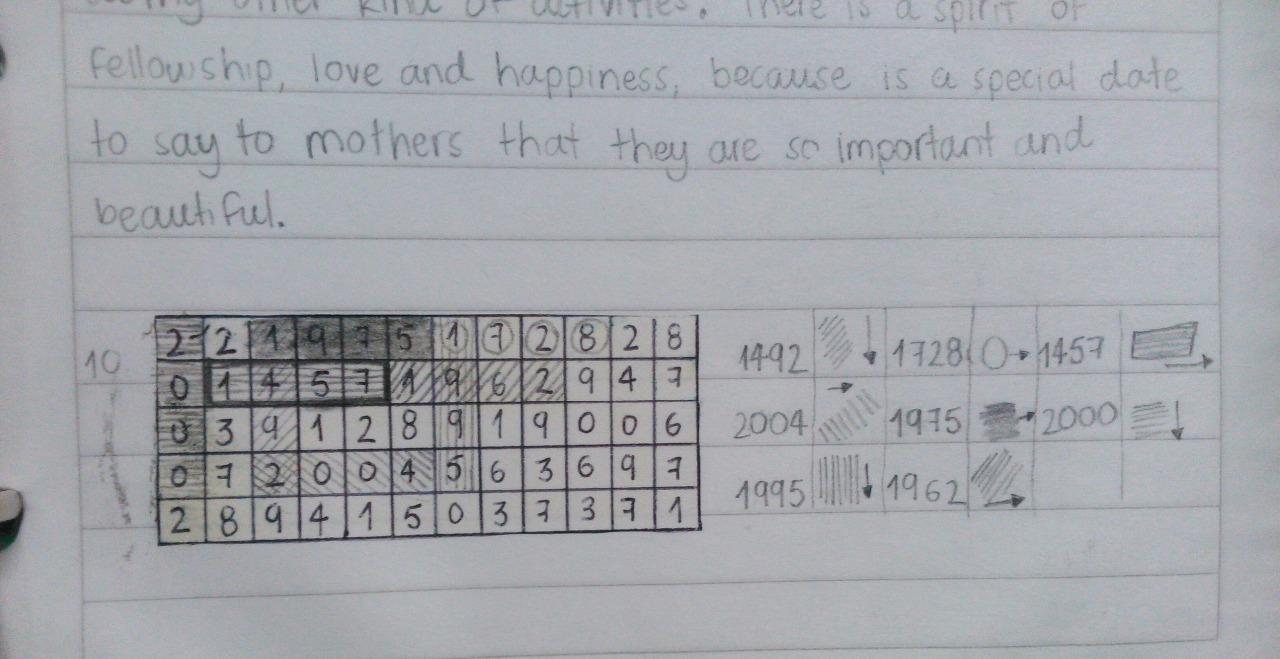 other kind of activities. There is a spirit of
fellowship, love and happiness, because is a special date
to say to mothers that they are so important and
beautiful.
10
2 2 1 9 7 5 1 7 2 8 2 8 1492 1728 1457
0 1 4 5 7 1 9 6 2 9 4 7
0 3 9 1 2 8 9 1 9 0 0 6 2004 1975 2000
0 7 2 0 0 4 5 6 3 6 9 7 1995 1962
2 8 9 4 1 5 0 3 7 3 7 1